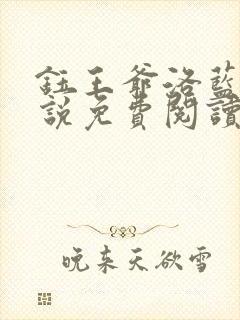 鈺王爺洛藍
說免費閱讀
晚来天欲雪